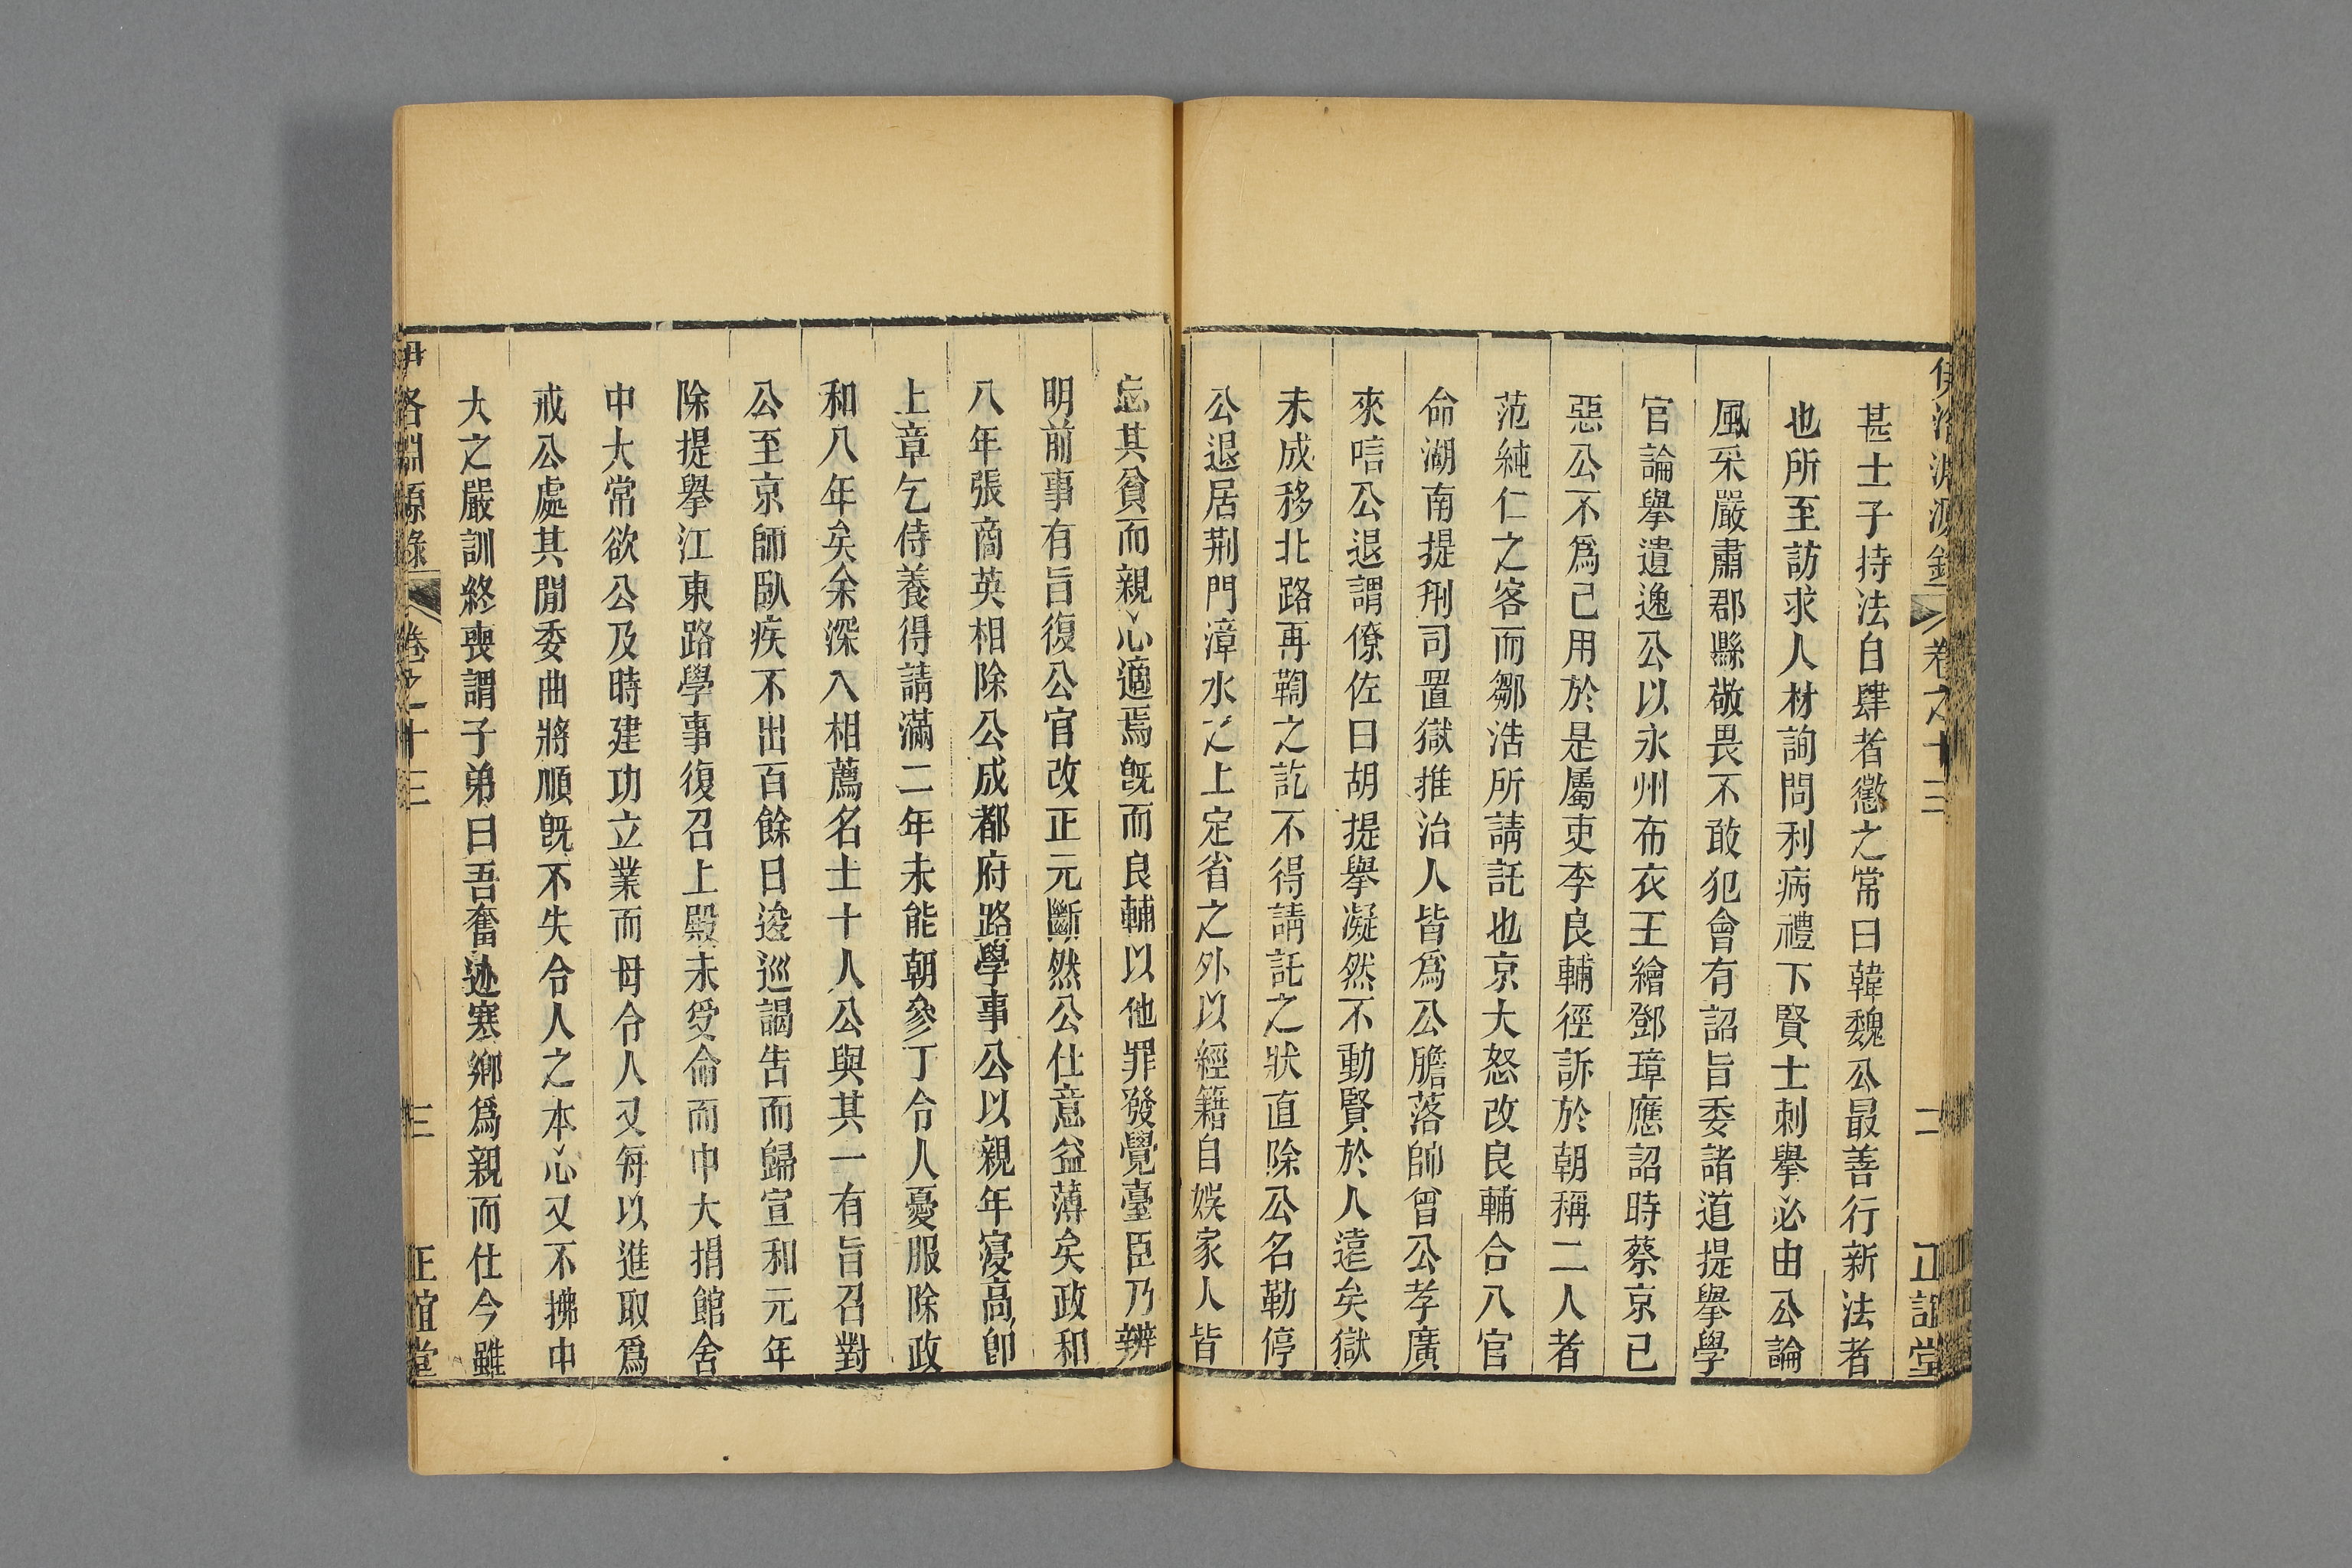 伊洛淵源錄 卷之十三 二 正誼堂
甚士子持法自肆者懲之常曰韓魏公最善行新法者
也所至訪求人材詢問利病禮下賢士刺擧必由公論
風采嚴肅郡縣敬畏不敢犯會有詔旨委諸道提擧學
官論擧遺逸公以永州布衣王繪鄧璋應詔時蔡京已
惡公不爲己用於是屬吏李良輔徑訴於朝稱二人者
范純仁之客而鄒浩所請託也京大怒改良輔合入官
命湖南提刑司置獄推治人皆爲公膽落帥曾公孝廣
來唁公退謂僚佐曰胡提擧凝然不動賢於人遠矣獄
未成移北路再鞫之訖不得請託之狀直除公名勒停
公退居荆門漳水之上定省之外以經籍自娛家人皆
忘其貧而親心適焉旣而良輔以他罪發覺臺臣乃辨
明前事有旨復公官改正元斷然公仕意益薄矣政和
八年張商英相除公成都府路學事公以親年寖高卽
上章乞侍養得請滿二年未能朝參丁令人憂服除政
和八年矣余深入相薦名士十人公與其一有旨召對
公至京師臥疾不出百餘日逡巡謁告而歸宣和元年
除提擧江東路學事復召上殿未受命而中大捐館舍
中大常欲公及時建功立業而母令人又每以進取爲
戒公處其閒委曲將順旣不失令人之本心又不拂中
大之嚴訓終喪謂子弟曰吾奮迹寒鄉爲親而仕今雖
伊洛淵源錄 卷之十三 三 正誼堂